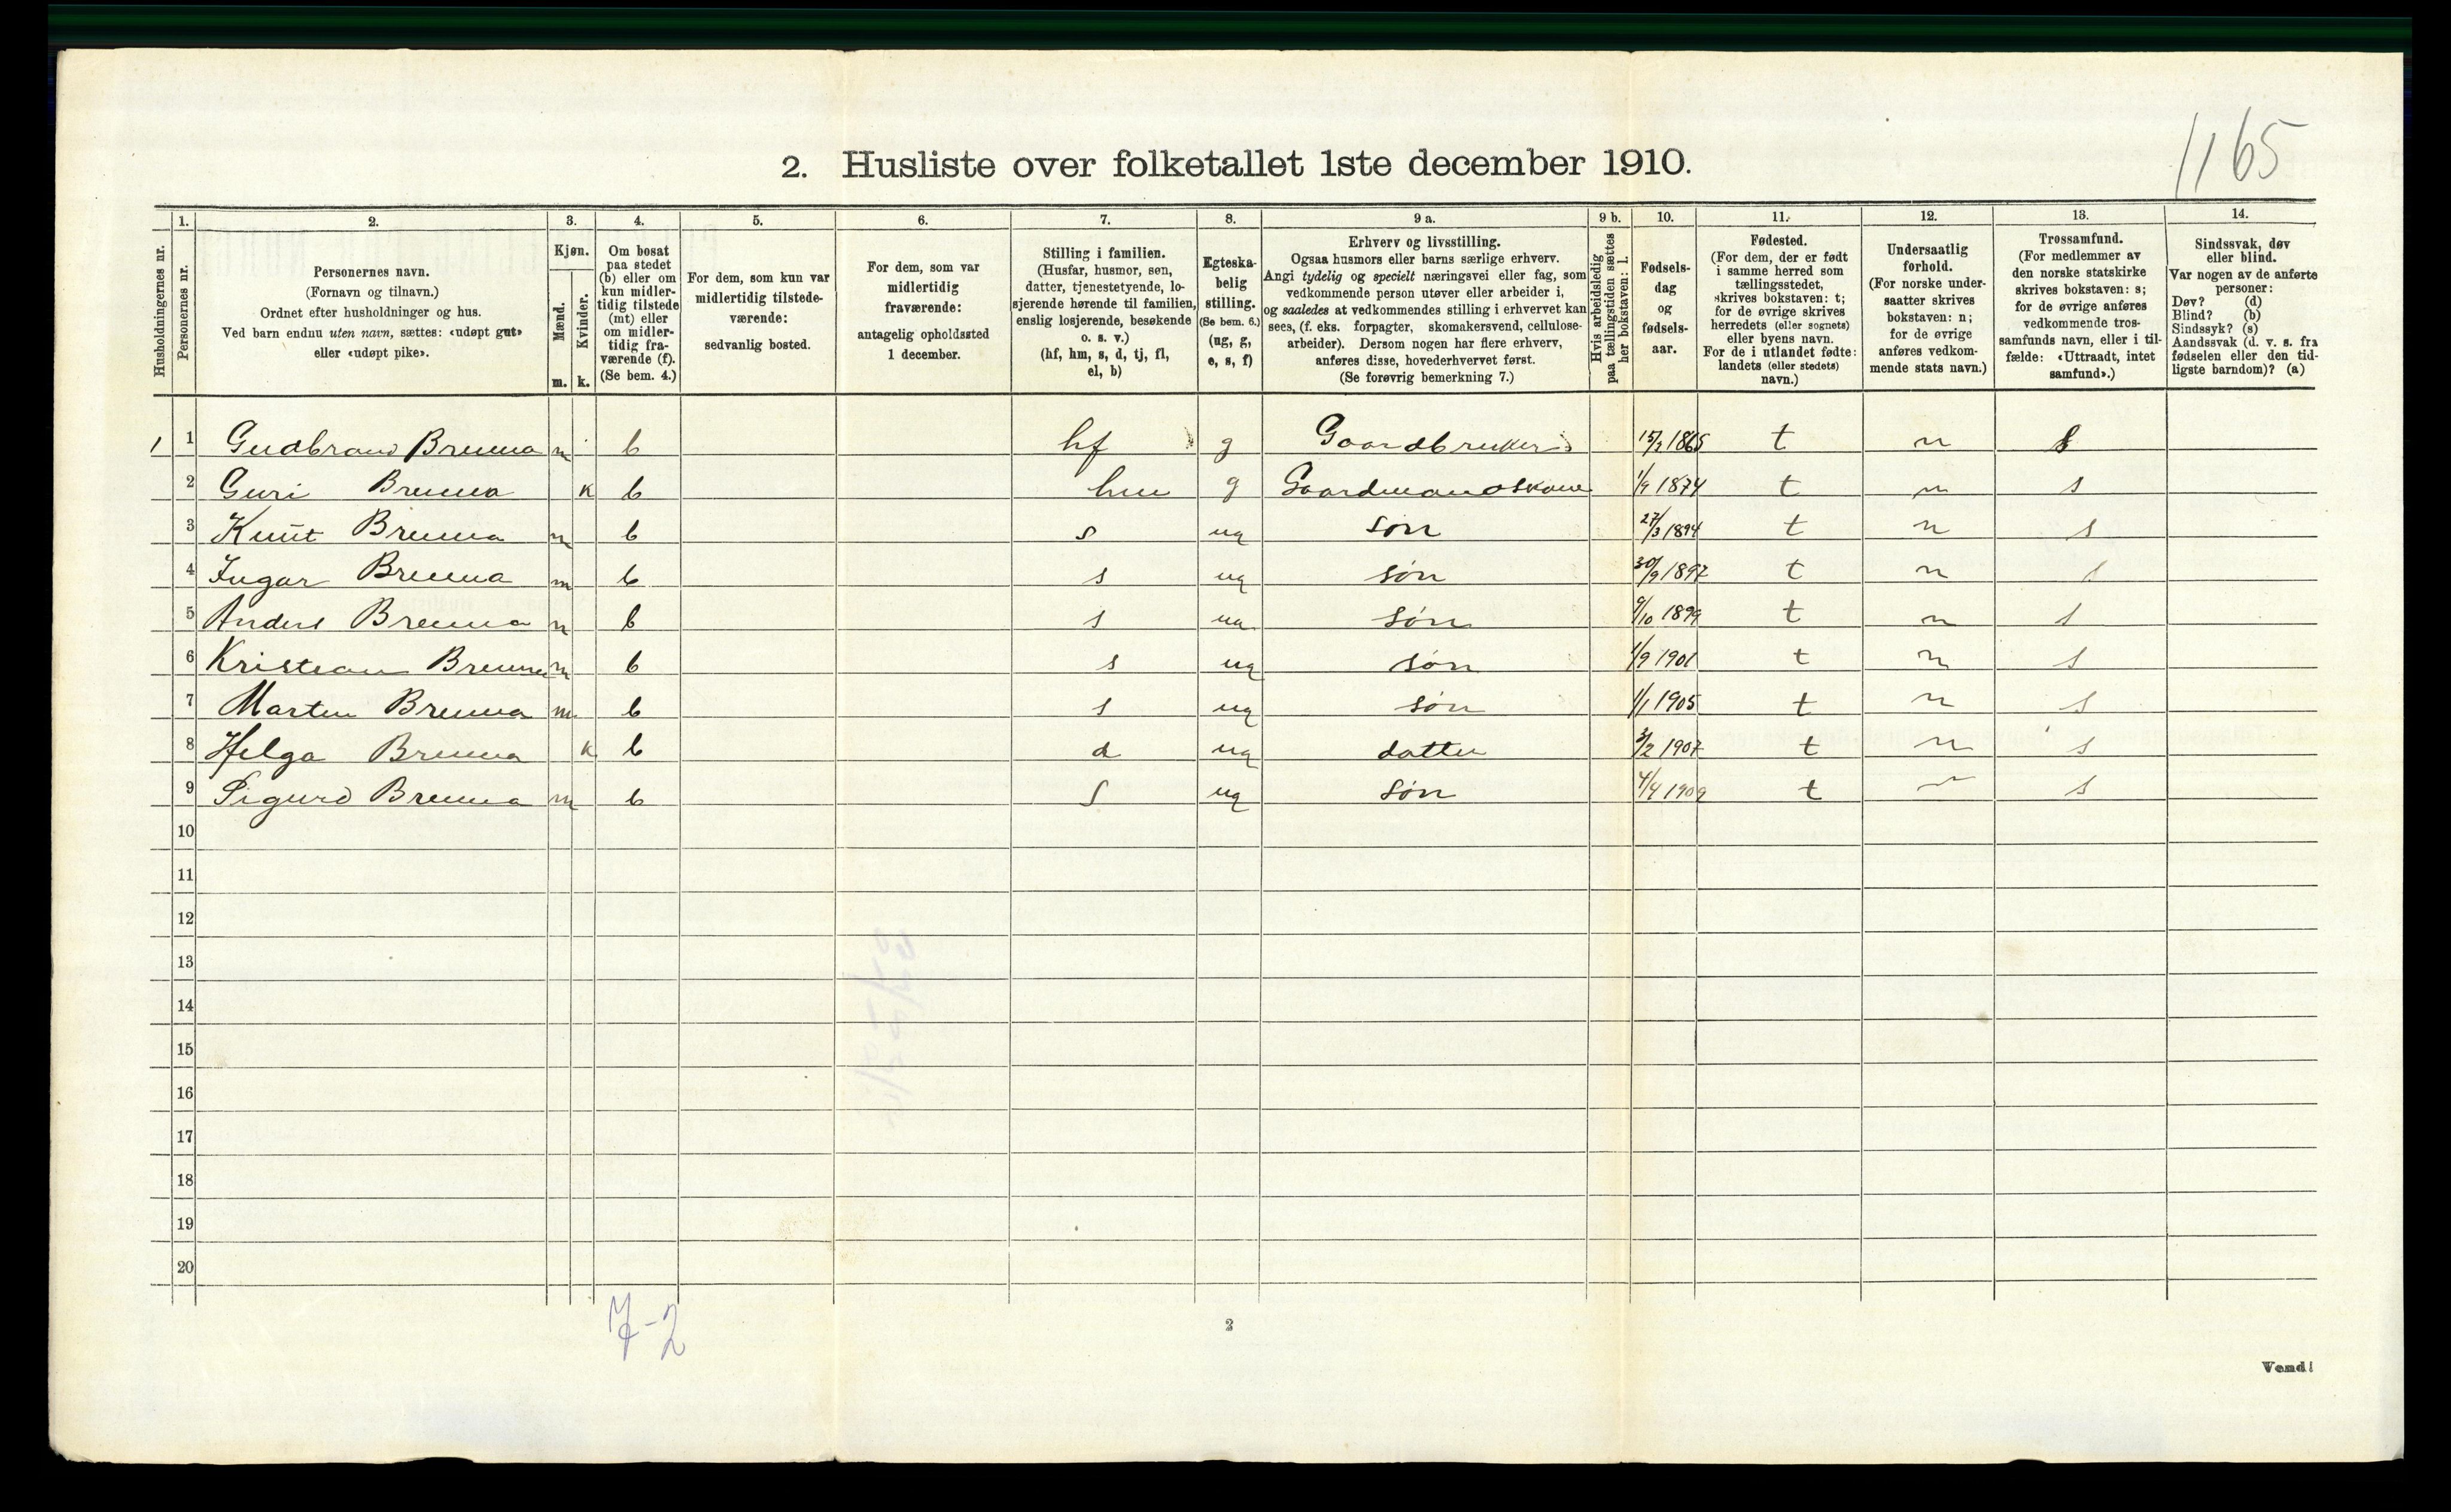 1165
2. Husliste over folketallet 1ste december 1910.
Husholdningernes nr.
1.
Personernes nr.
2.
Personernes navn.
(Fornavn og tilnavn.)
Ordnet efter husholdninger og hus.
Ved barn endnu uten navn, sættes: «udøpt gut»
eller «udøpt pike».
3.
Kjøn.
Mænd.
Kvinder.
m. k.
4.
Om bosat
paa stedet
(b) eller om
kun midler-
tidig tilstede
(mt) eller
om midler-
tidig fra-
værende (f).
(Se bem. 4.)
5.
For dem, som kun var
midlertidig tilstede-
værende:
sedvanlig bosted.
6.
For dem, som var
midlertidig
fraværende:
antagelig opholdssted
1 december.
7.
Stilling i familien.
(Husfar, husmor, søn,
datter, tjenestetyende, lo-
sjerende hørende til familien,
enslig losjerende, besøkende
o. s. v.)
(hf, hm, s, d, tj, fl,
el, b)
8.
Egteska-
belig
stilling.
(Se bem. 6.)
(ug, g,
e, s, f)
9 a.
Erhverv og livsstilling.
Ogsaa husmors eller barns særlige erhverv.
Angi tydelig og specielt næringsvei eller fag, som
vedkommende person utøver eller arbeider i,
og saaledes at vedkommendes stilling i erhvervet kan
sees, (f. eks. forpagter, skomakersvend, cellulose-
arbeider). Dersom nogen har flere erhverv,
anføres disse, hovederhvervet først.
(Se forøvrig bemerkning 7.)
9 b.
Hvis arbeidsledig
paa tællingstiden sættes
her bokstaven: l.
10.
Fødsels-
dag
og
fødsels-
aar.
11.
Fødested.
(For dem, der er født
i samme herred som
tællingsstedet,
skrives bokstaven: t;
for de øvrige skrives
herredets (eller sognets)
eller byens navn.
For de i utlandet fødte:
landets (eller stedets)
navn.)
12.
Undersaatlig
forhold.
(For norske under-
saatter skrives
bokstaven: n;
for de øvrige
anføres vedkom-
mende stats navn.)
13.
Trossamfund.
(For medlemmer av
den norske statskirke
skrives bokstaven: s;
for de øvrige anføres
vedkommende tros-
samfunds navn, eller i til-
fælde: «Uttraadt, intet
samfund».)
14.
Sindssvak, døv
eller blind.
Var nogen av de anførte
personer:
Døv? (d)
Blind? (b)
Sindssyk? (s)
Aandssvak (d. v. s. fra
fødselen eller den tid-
ligste barndom)? (a)
1 1 Gudbrand Brenna m b hf g Gaardbruker 15/2 1865 t n s
2 Guri Brenna k b hm g Gaardmandskone 1/9 1874 t n s
3 Knut Brenna m b s ug søn 27/3 1894 t n s
4 Ingar Brenna m b s ug søn 30/9 1897 t n s
5 Anders Brenna m b s ug søn 9/10 1899 t n s
6 Kristian Brenna m b s ug søn 1/9 1901 t n s
7 Martin Brenna m b s ug søn 1/1 1905 t n s
8 Helga Brenna k b d ug datter 3/2 1907 t n s
9 Sigurd Brenna m b s ug søn 4/4 1909 t n s
10
11
12
13
14
15
16
17
18
19
20
7-2
2
Vend!